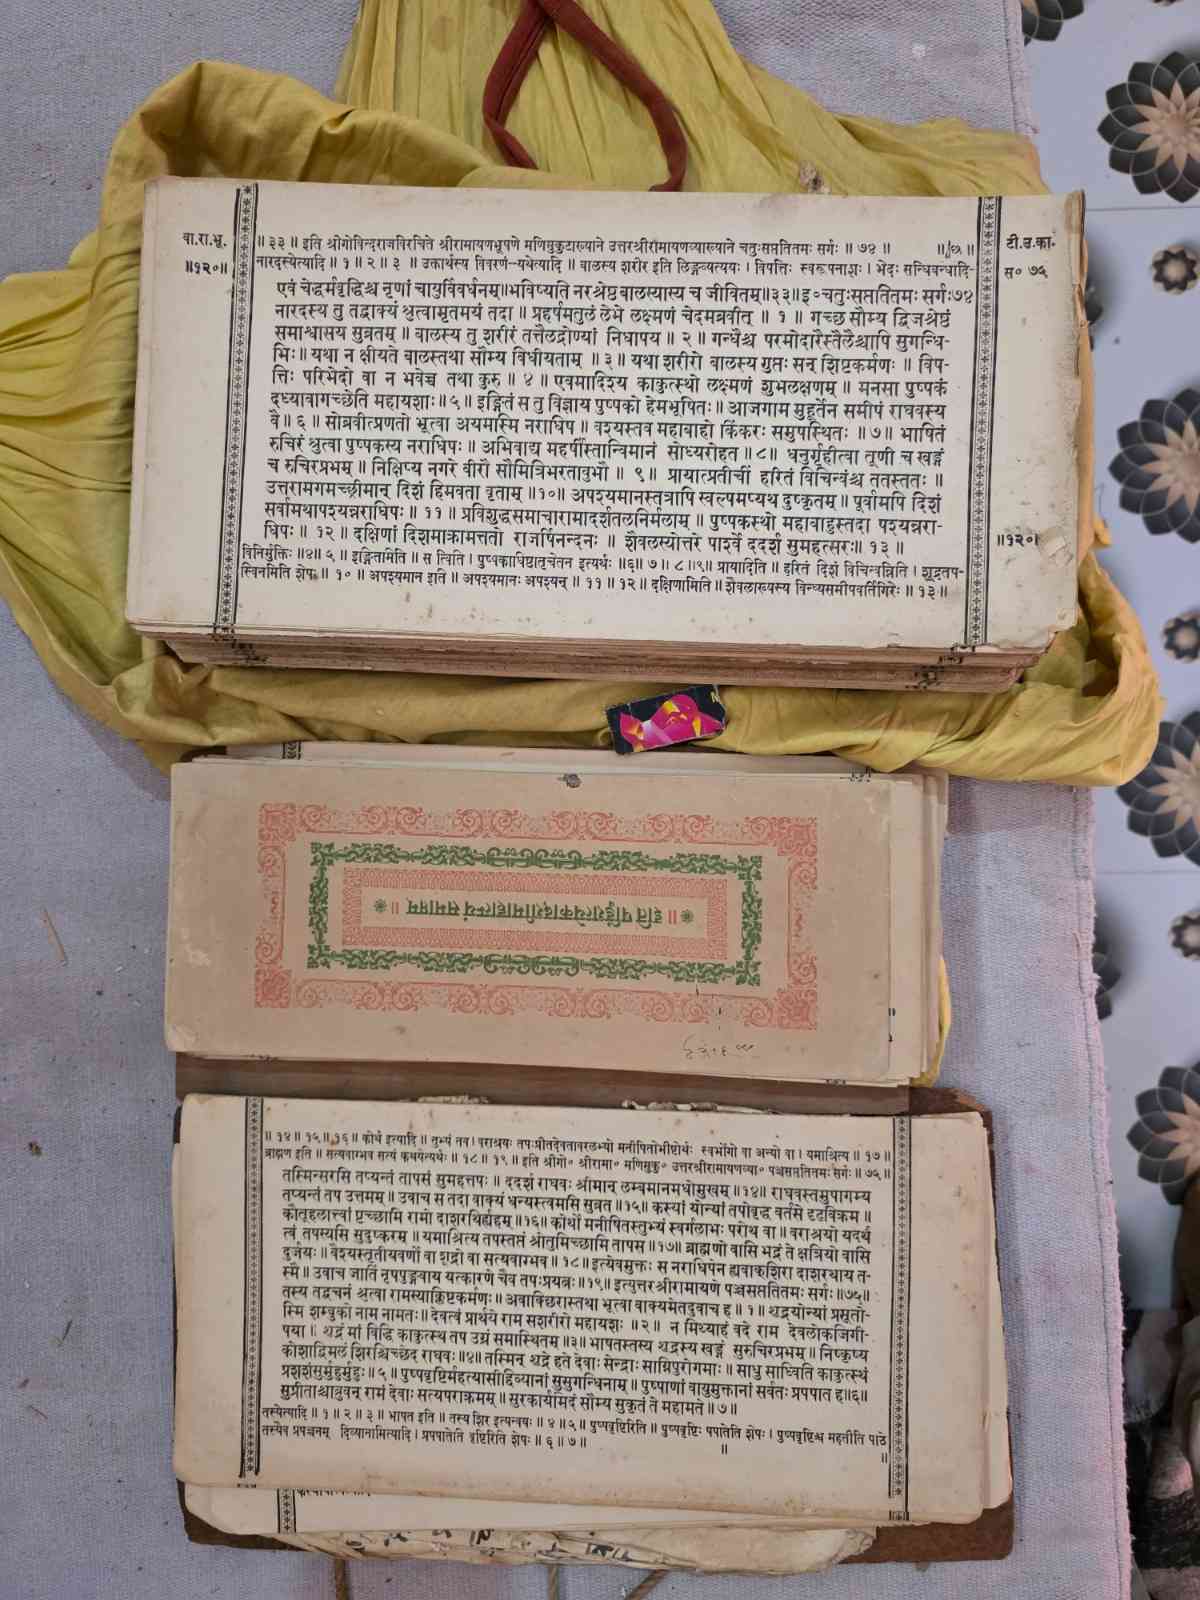 वा.रा.भू.
॥१२०॥
टी.उ.का.
स० ७५
॥१२०॥
॥ ३३ ॥ इति श्रीगोविन्दराजविरचिते श्रीरामायणभूषणे मणिमुकुटाख्याने उत्तरश्रीरामायणव्याख्याने चतुःसप्ततितमः सर्गः ॥ ७४ ॥
नारदस्येत्यादि ॥ १ ॥ २ ॥ ३ ॥ उक्तार्थस्य विवरणं--यथेत्यादि ॥ बालस्य शरीर इति लिङ्गव्यत्ययः । विपत्तिः स्वरूपनाशः । भेदः सन्धिबन्धादि-
एवं चेद्धर्मवृद्धिश्च नृणां चायुर्विवर्धनम्॥भविष्यति नरश्रेष्ठ बालस्यास्य च जीवितम्॥३३॥इ०चतुःसप्ततितमः सर्गः७४
नारदस्य तु तद्वाक्यं श्रुत्वामृतमयं तदा ॥ प्रहर्षमतुलं लेभे लक्ष्मणं चेदमब्रवीत् ॥ १ ॥ गच्छ सौम्य द्विजश्रेष्ठं
समाश्वासय सुव्रतम् ॥ बालस्य तु शरीरं तत्तैलद्रोण्यां निधापय ॥ २ ॥ गन्धैश्च परमोदारैस्तैलैश्चापि सुगन्धि-
भिः॥ यथा न क्षीयते बालस्तथा सौम्य विधीयताम् ॥ ३ ॥ यथा शरीरो बालस्य गुप्तः सन् क्लिष्टकर्मणः ॥ विप-
त्तिः परिभेदो वा न भवेच्च तथा कुरु ॥ ४ ॥ एवमादिश्य काकुत्स्थो लक्ष्मणं शुभलक्षणम् ॥ मनसा पुष्पकं
दध्यावागच्छेति महायशाः॥५॥ इङ्गितं स तु विज्ञाय पुष्पको हेमभूषितः॥ आजगाम मुहूर्तेन समीपं राघवस्य
वै॥ ६ ॥ सोब्रवीत्प्रणतो भूत्वा अयमस्मि नराधिप ॥ वश्यस्तव महाबाहो किंकरः समुपस्थितः ॥ ७॥ भाषितं
रुचिरं श्रुत्वा पुष्पकस्य नराधिपः॥ अभिवाद्य महर्षीस्तान्विमानं सोध्यरोहत॥ ८॥ धनुर्गृहीत्वा तूणी च खङ्गं
च रुचिरप्रभम् ॥ निक्षिप्य नगरे वीरौ सौमित्रिभरतावुभौ ॥ ९ ॥ प्रायात्प्रतीचीं हरितं विचिन्वंश्च ततस्ततः ॥
उत्तरामगमच्छ्रीमान् दिशं हिमवता वृताम् ॥१०॥ अपश्यमानस्तत्रापि स्वल्पमप्यथ दुष्कृतम् ॥ पूर्वामपि दिशं
सर्वामथापश्यन्नराधिपः॥ ११ ॥ प्रविशुद्धसमाचारामादर्शतलनिर्मलाम् ॥ पुष्पकस्थो महाबाहुस्तदा पश्यन्नरा-
धिपः॥ १२ ॥ दक्षिणां दिशमाक्रामत्ततो राजर्षिनन्दनः ॥ शैवलस्योत्तरे पार्श्वे ददर्श सुमहत्सरः॥ १३ ॥
विनिर्मुक्तिः ॥४॥ ५ ॥ इङ्गितमिति ॥ स त्विति । पुष्पकाधिष्ठातृचेतन इत्यर्थः ॥६॥ ७॥ ८॥९॥ प्रायादिति ॥ हरितं दिशं विचिन्वन्निति । शूद्रतप-
स्विनमिति शेषः॥ १० ॥ अपश्यमान इति ॥ अपश्यमानः अपश्यन् ॥ ११ ॥ १२ ॥ दक्षिणामिति ॥ शैवलाख्यस्य विन्ध्यसमीपवर्तिगिरेः॥ १३ ॥
॥ इति षड्विंशत्येकादशीमाहात्म्यं समाप्तम् ॥
॥ १४॥ १५॥ १६॥ कोर्थ इत्यादि ॥ तुभ्यं तव । पराश्रयः तपःप्रीतदेवतावरलभ्यो मनीषितोभीष्टोर्थः स्वर्भोगो वा अन्यो वा । यमाश्रित्य ॥ १७॥
ब्राह्मण इति ॥ सत्यवाग्भव सत्यं कथयेत्यर्थः ॥ १८॥ १९ ॥ इति श्रीगो० श्रीरामा० मणिमुकु० उत्तरश्रीरामायणव्या० पञ्चसप्ततितमः सर्गः॥ ७५॥
तस्मिन्सरसि तप्यन्तं तापसं सुमहत्तपः॥ ददर्श राघवः श्रीमान् लम्बमानमधोमुखम्॥१४॥ राघवस्तमुपागम्य
तप्यन्तं तप उत्तमम्॥ उवाच स तदा वाक्यं धन्यस्त्वमसि सुव्रत॥१५॥ कस्यां योन्यां तपोवृद्ध वर्तसे दृढविक्रम॥
कौतूहलात्त्वां पृच्छामि रामो दाशरथिर्ह्यहम्॥१६॥ कोर्थो मनीषितस्तुभ्यं स्वर्गलाभः परोथ वा॥ वराश्रयो यदर्थं
त्वं तपस्यसि सुदुष्करम्॥ यमाश्रित्य तपस्तप्तं श्रोतुमिच्छामि तापस॥१७॥ ब्राह्मणो वासि भद्रं ते क्षत्रियो वासि
दुर्जयः॥ वैश्यस्तृतीयवर्णो वा शूद्रो वा सत्यवाग्भव॥१८॥ इत्येवमुक्तः स नराधिपेन ह्यवाक्शिरा दाशरथाय त-
स्मै॥ उवाच जातिं नृपपुङ्गवाय यत्कारणे चैव तपःप्रयत्नः॥१९॥ इत्युत्तरश्रीरामायणे पञ्चसप्ततितमः सर्गः॥७५॥
तस्य तद्वचनं श्रुत्वा रामस्याक्लिष्टकर्मणः॥ अवाक्छिरास्तथा भूत्वा वाक्यमेतदुवाच ह॥ १॥ शूद्रयोन्यां प्रसूतो-
स्मि शम्बुको नाम नामतः॥ देवत्वं प्रार्थये राम सशरीरो महायशः ॥ २॥ न मिथ्याहं वदे राम देवलोकजिगी-
षया॥ शूद्रं मां विद्धि काकुत्स्थ तप उग्रं समास्थितम्॥३॥ भाषतस्तस्य शूद्रस्य खङ्गं सुरुचिरप्रभम्॥ निष्कृष्य
कोशाद्विमलं शिरश्चिच्छेद राघवः॥४॥ तस्मिन् शूद्रे हते देवाः सेन्द्राः साग्निपुरोगमाः॥ साधु साध्विति काकुत्स्थं
प्रशशंसुर्मुहुर्मुहुः॥५॥ पुष्पवृष्टिर्महत्यासीद्दिव्यानां सुसुगन्धिनाम्॥ पुष्पाणां वायुमुक्तानां सर्वतः प्रपपात ह॥६॥
सुप्रीताश्चाब्रुवन् रामं देवाः सत्यपराक्रमम्॥ सुरकार्यमिदं सौम्य सुकृतं ते महामते॥७॥
तस्येत्यादि॥ १॥ २॥ ३॥ भाषत इति॥ तस्य शिर इत्यन्वयः॥ ४॥ ५॥ पुष्पवृष्टिरिति॥ पुष्पवृष्टिः पपातेति शेषः। पुष्पवृष्टिश्च महतीति पाठे
तस्यैव प्रपञ्चनम् दिव्यानामित्यादि। प्रपपातेति वृष्टिरिति शेषः॥ ६॥ ७॥